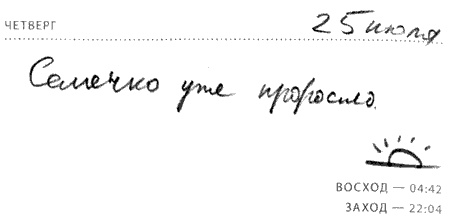 ЧЕТВЕРГ
25 июля
Семечко уже проросло.
ВОСХОД — 04:42
ЗАХОД — 22:04